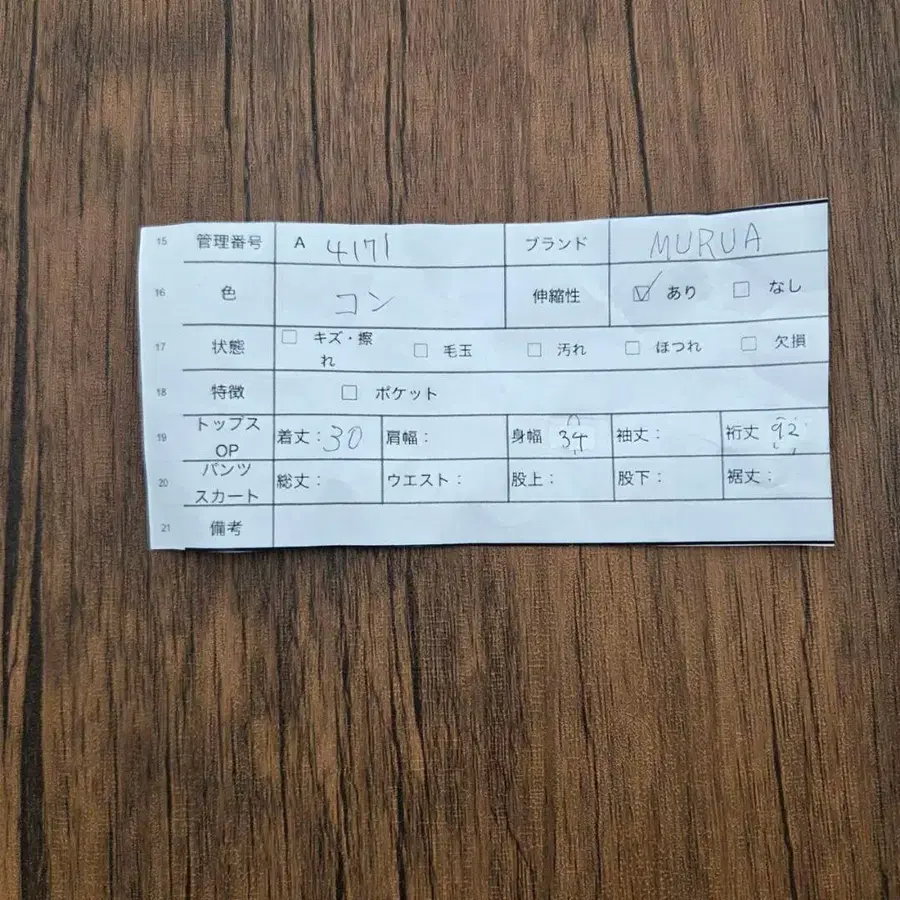 15 管理番号 A 4171 ブランド MURUA
16 色 コン 伸縮性 ☑ あり □ なし
17 状態 □ キズ・擦れ □ 毛玉 □ 汚れ □ ほつれ □ 欠損
18 特徴 □ ポケット
19 トップス OP 着丈：30 肩幅： 身幅 34 袖丈： 裄丈 92
20 パンツ スカート 総丈： ウエスト： 股上： 股下： 裾丈：
21 備考